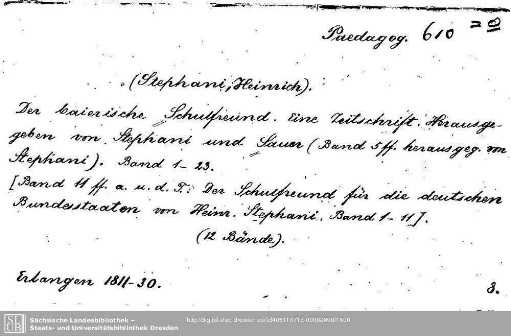 Paedagog. 610
(Stephani, Heinrich).
Der baierische Schulfreund. Eine Zeitschrift. Herausge-
geben von Stephani und Sauer (Band 5 ff. herausgeg. von
Stephani). Band 1-23.
[Band 11 ff. a. u. d. T.: Der Schulfreund für die deutschen
Bundesstaaten von Heinr. Stephani. Band 1-11].
(12 Bände).
Erlangen 1811-30.
8.
Sächsische Landesbibliothek –
Staats- und Universitätsbibliothek Dresden